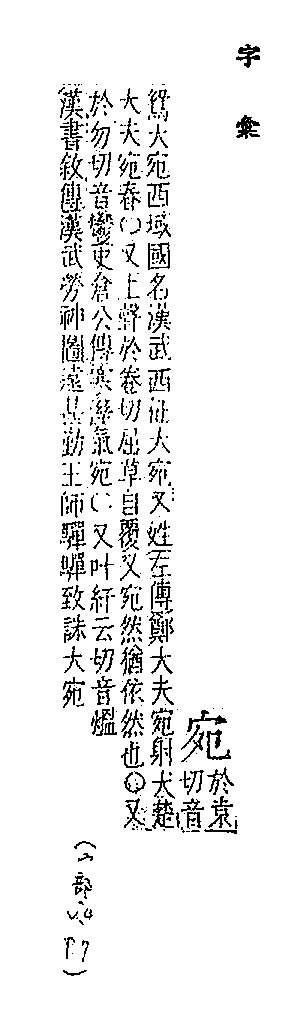 字彙
宛於袁切音
鴛大宛西域國名漢武西征大宛又姓左傳鄭大夫宛射犬楚
大夫宛春○又上聲於卷切屈草自覆又宛然猶依然也○又
於勿切音鬱史倉公傳寒濕氣宛○又叶紆云切音熅
漢書敘傳漢武勞神圖遠甚勤王師驒驒致誅大宛
(宀部 v.4 p7)